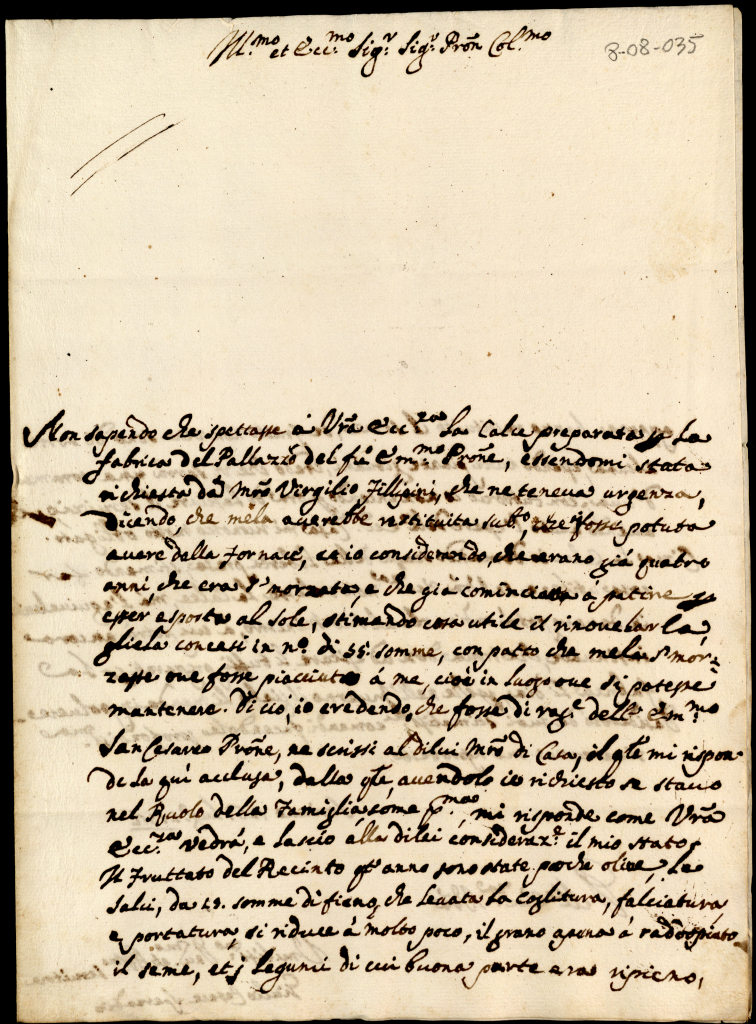 Ill.mo et Ecc.mo Sig.r Sig.r Prōn Col.mo
8-08-035
Non sapendo che spettasse à Vrā Ecc.za La Calce preparata p La
fabrica del Pallazzo del fù Em.mo Prōne, essendomi stata
richiesta dà Mrō Virgilio Fillipini, che ne teneva urgenza,
dicendo, che mela averebbe restituita sub.o, che fosse potuta
avere della fornace, et io considerando, che erano già quatro
anni, che era smorzata, e che già cominciava à patire p
esser esposta al sole, stimando cosa utile il rinovellarla,
gliela concessi in n.o di 35. somme, con patto che mela smor=
zasse ove fosse piacciuto à me, cioè in luogo ove si potesse
mantenere. Di ciò, io credendo, che fosse di rag.e dell' Em.mo
San Cesareo Prōne, ne scrissi al dilui Mrō di Casa, il qle mi rispon
de La quì acclusa, dalla qle, avendolo io richiesto se stavo
nel Ruolo della Famiglia, come p.ma, mi risponde come Vrā
Ecc.za vedrà, e lascio alla dilei consideraz.e il mio stato.
Il Fruttato del Recinto qt anno sono state poche olive, Le
Salci, da 19. somme di fieno, che Levata La Coglitura, falciatura,
e portatura, si riduce à molto poco, il grano apena à raddoppiato
il seme, et j legumi di cui buona parte era ripieno,